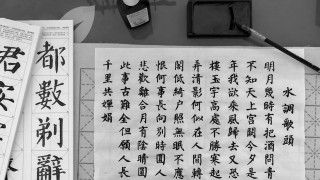 水調歌頭
明月幾時有把酒問青
不知天上宮闕今夕是
年我欲乘風歸去又恐
樓玉宇高處不勝寒起
弄清影何似在人間轉
閣低綺戶照無眠不應
恨何事長向別時圓人
悲歡離合月有陰晴圓
此事古難全但願人長
千里共嬋娟
都數剃辭
君